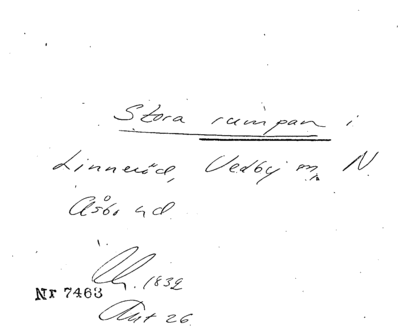 Stora rumpan i
Linneröd, Vedby m, N.
Åsbo hd
1832
Nr 7463
Akt 26